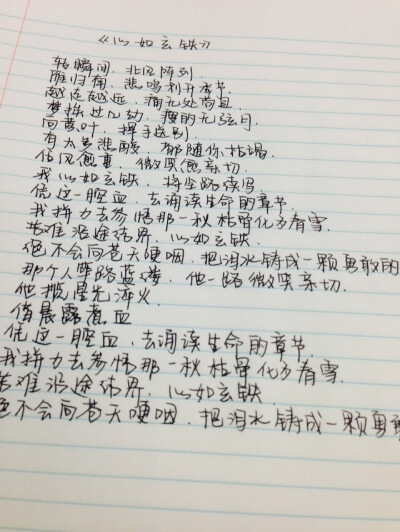 《心如玄铁》
转瞬间，北风阵列
雁归南，悲鸣利开季节
越走越远，痛无处苟且
梦掠过几动，瘦的无弦月
问落叶，挥手送别
有太多悲酸，都随你枯竭
信风愈重，微笑愈亲切
我心如玄铁，将坐路读写
凭这一腔血，去诵读生命的章节
我拼力去参悟那一秋枯骨化为春雪
苦难沿途结界，心如玄铁
绝不会向苍天哽咽，把泪水铸成一颗勇敢的
那个人筚路蓝缕，他一路微笑亲切
他揽星光淬火
借晨露煮血
凭这一腔血，去诵读生命的章节
我拼力去参悟那一秋枯骨化为春雪
苦难沿途结界，心如玄铁
绝不会向苍天哽咽，把泪水铸成一颗勇敢